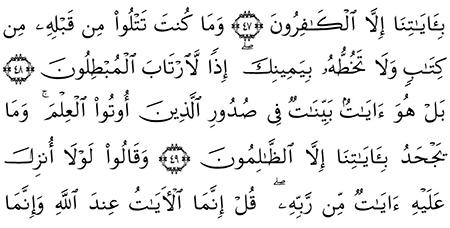 بِـَٔايَٰتِنَآ إِلَّا ٱلْكَٰفِرُونَ ٤٧ وَمَا كُنتَ تَتْلُوا۟ مِن قَبْلِهِۦ مِن
كِتَٰبٍ وَلَا تَخُطُّهُۥ بِيَمِينِكَ ۖ إِذًا لَّٱرْتَابَ ٱلْمُبْطِلُونَ ٤٨
بَلْ هُوَ ءَايَٰتٌۢ بَيِّنَٰتٌ فِى صُدُورِ ٱلَّذِينَ أُوتُوا۟ ٱلْعِلْمَ ۚ وَمَا
يَجْحَدُ بِـَٔايَٰتِنَآ إِلَّا ٱلظَّٰلِمُونَ ٤٩ وَقَالُوا۟ لَوْلَآ أُنزِلَ
عَلَيْهِ ءَايَٰتٌ مِّن رَّبِّهِۦ ۖ قُلْ إِنَّمَا ٱلْءَايَٰتُ عِندَ ٱللَّهِ وَإِنَّمَآ